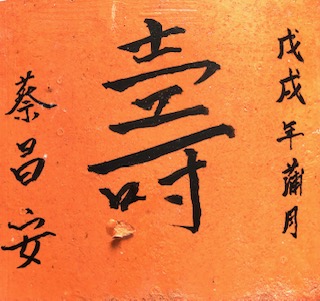 戊戌年蒲月
壽
蔡昌安